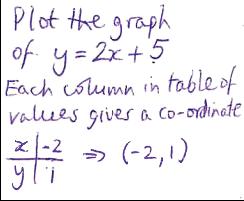 Plot the graph
of y = 2x + 5
Each column in table of
values gives a co-ordinate
x | -2
y | 1 ⇒ (-2, 1)